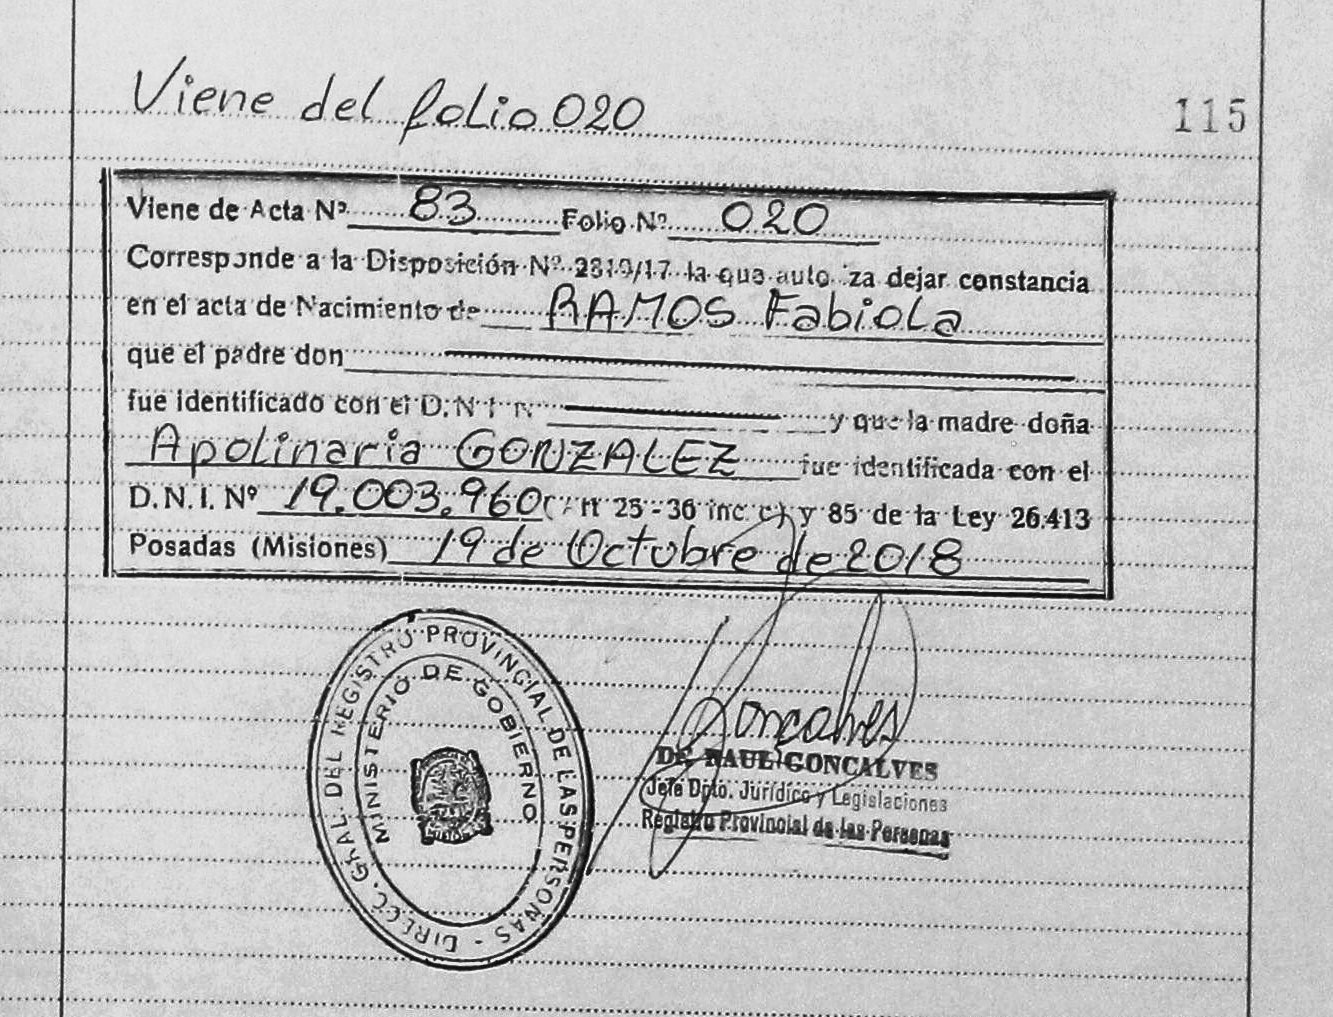 Viene del folio 020
115
Viene de Acta Nº 83 Folio Nº 020
Corresponde a la Disposición Nº 2819/17 la que auto iza dejar constancia
en el acta de Nacimiento de RAMOS Fabiola
que el padre don
fue identificado con el D.N.I. Nº y que la madre doña
Apolinaria GONZALEZ fue identificada con el
D.N.I. Nº 19.003.960 (Art 25 - 36 inc. c) y 85 de la Ley 26.413
Posadas (Misiones) 19 de Octubre de 2018
DIRECC. GRAL. DEL REGISTRO PROVINCIAL DE LAS PERSONAS -
MINISTERIO DE GOBIERNO
Goncalves
Dr. RAUL GONCALVES
Jefe Dpto. Jurídico y Legislaciones
Registro Provincial de las Personas